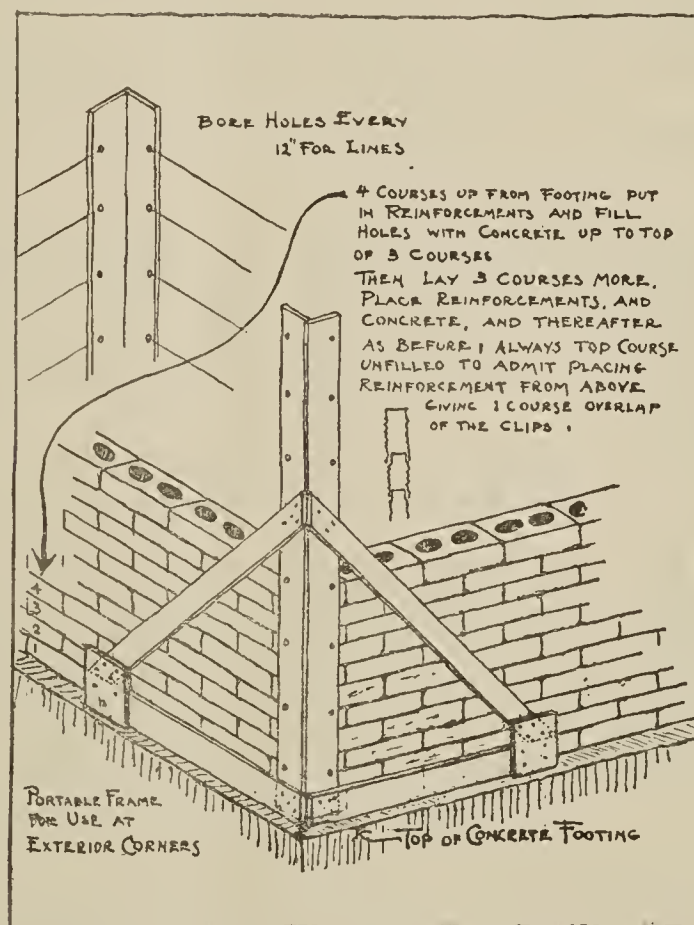 BORE HOLES EVERY
12" FOR LINES
4 COURSES UP FROM FOOTING PUT
IN REINFORCEMENTS AND FILL
HOLES WITH CONCRETE UP TO TOP
OF 3 COURSES
THEN LAY 3 COURSES MORE,
PLACE REINFORCEMENTS, AND
CONCRETE, AND THEREAFTER
AS BEFORE, ALWAYS TOP COURSE
UNFILLED TO ADMIT PLACING
REINFORCEMENT FROM ABOVE
GIVING 1 COURSE OVERLAP
OF THE CLIPS.
4
3
2
1
PORTABLE FRAME
FOR USE AT
EXTERIOR CORNERS
TOP OF CONCRETE FOOTING